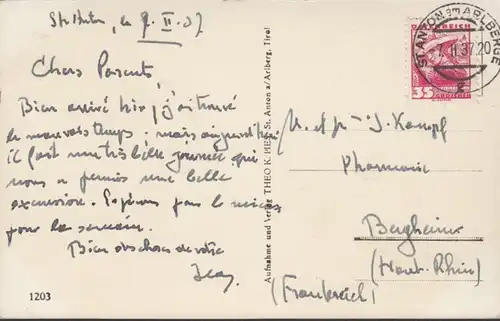 St. Anton, le 7. II. 37
Chers Parents,
Bien arrivé hier, j'ai trouvé
le mauvais temps, mais aujourd'hui
il fait une très belle journée qui
nous a permis une belle
excursion. Espérons pas le
pour la semaine.
Bien des choses de votre
Jean
1203
Aufnahme und Verlag THEO K. HESS, St. Anton a/Arlberg, Tirol
ST. ANTON AM ARLBERGE
7. II. 37. 20
ÖSTERREICH
35
GROSCHEN
M. et Me J. Kempf
Pharmacie
Bergheim
(Haut-Rhin)
(Frankreich)